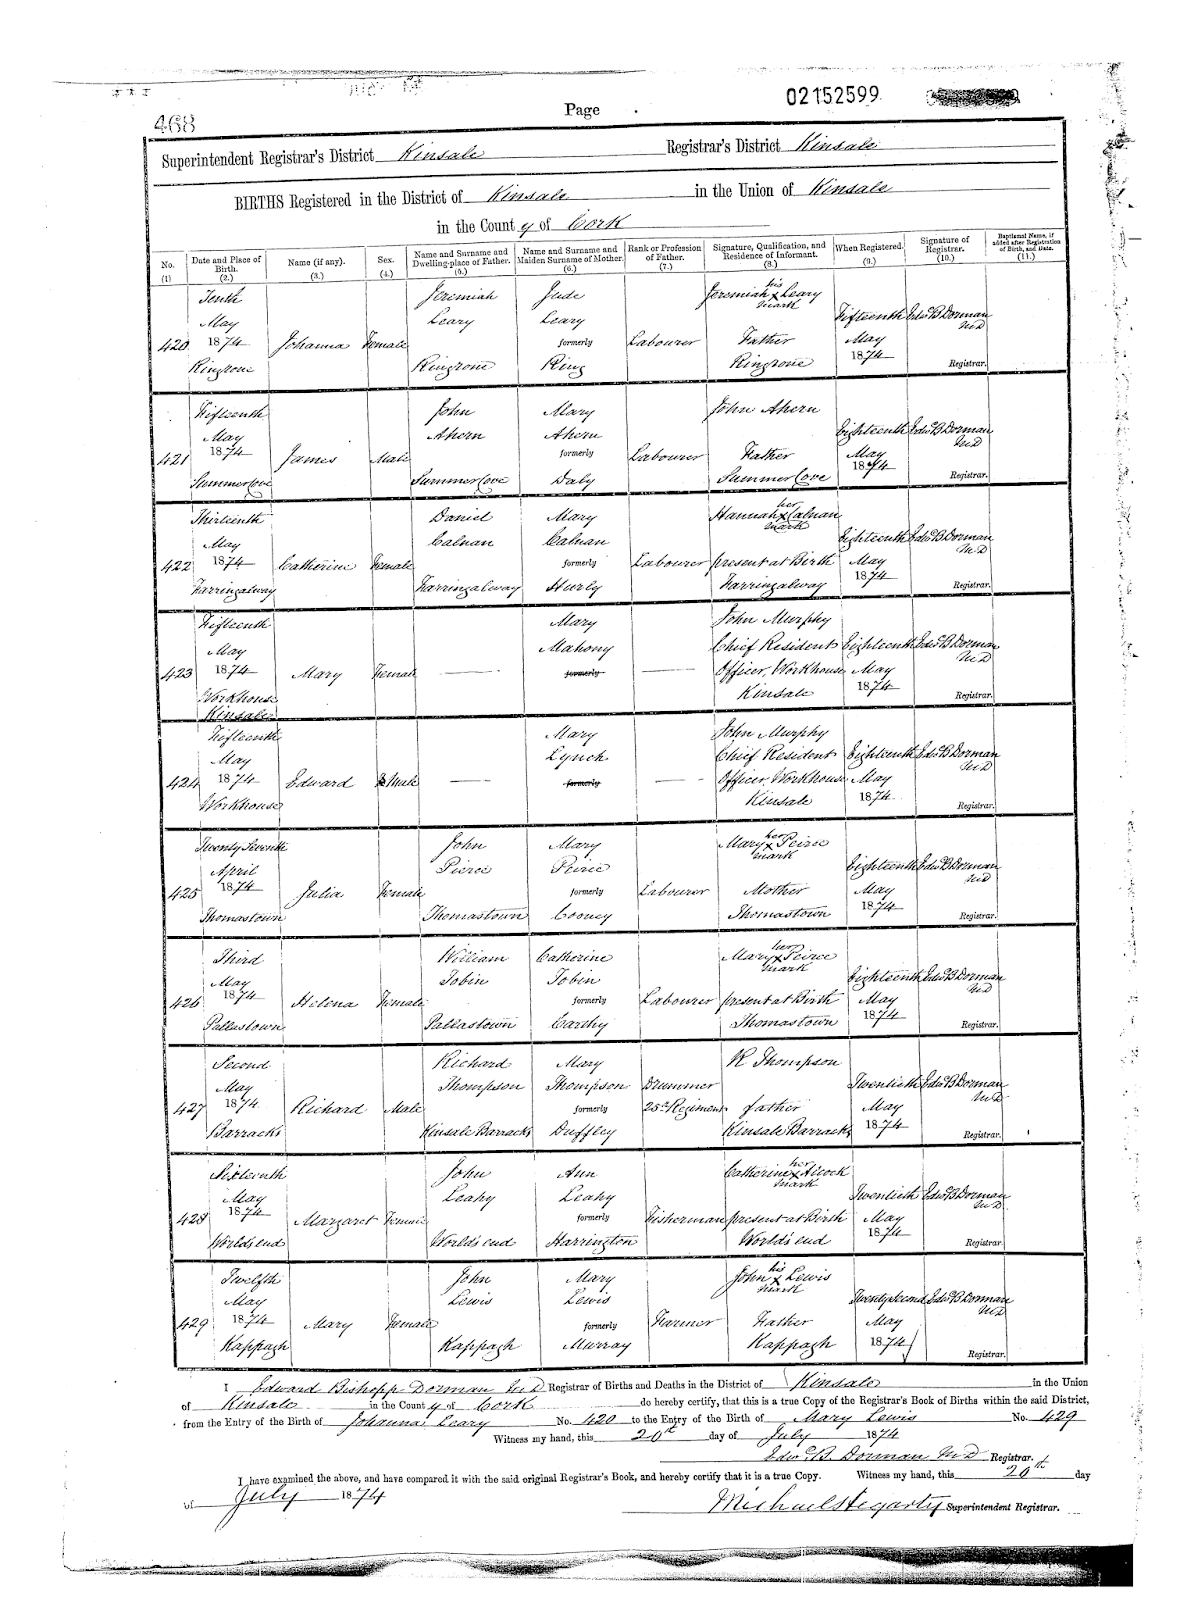 Page
02152599
468
Superintendent Registrar's District Kinsale Registrar's District Kinsale
BIRTHS Registered in the District of Kinsale in the Union of Kinsale
in the County of Cork
No. (1) Date and Place of Birth. (2.) Name (if any). (3.) Sex. (4.) Name and Surname and Dwelling-place of Father. (5.) Name and Surname and Maiden Surname of Mother. (6.) Rank or Profession of Father. (7.) Signature, Qualification, and Residence of Informant. (8.) When Registered. (9.) Signature of Registrar. (10.) Baptismal Name, if added after Registration of Birth, and Date. (11.)
420 Tenth May 1874 Ringrone Johanna Female Jeremiah Leary Ringrone Jude Leary formerly Ring Labourer Jeremiah his x mark Leary Father Ringrone Fifteenth May 1874 Edwd B Dorman MD Registrar.
421 Fifteenth May 1874 Summer Cove James Male John Ahern Summer Cove Mary Ahern formerly Daly Labourer John Ahern Father Summer Cove Eighteenth May 1874 Edwd B Dorman MD Registrar.
422 Thirteenth May 1874 Farringalway Catherine Female Daniel Calnan Farringalway Mary Calnan formerly Hurly Labourer Hannah her x mark Calnan present at Birth Farringalway Eighteenth May 1874 Edwd B Dorman MD Registrar.
423 Fifteenth May 1874 Workhouse Kinsale Mary Female Mary Mahony formerly John Murphy Chief Resident Officer, Workhouse Kinsale Eighteenth May 1874 Edwd B Dorman MD Registrar.
424 Fifteenth May 1874 Workhouse Edward Male Mary Lynch formerly John Murphy Chief Resident Officer, Workhouse Kinsale Eighteenth May 1874 Edwd B Dorman MD Registrar.
425 Twenty Seventh April 1874 Thomastown Julia Female John Pierce Thomastown Mary Peirce formerly Cooney Labourer Mary her x mark Peirce Mother Thomastown Eighteenth May 1874 Edwd B Dorman MD Registrar.
426 Third May 1874 Pallastown Helena Female William Tobin Pallastown Catherine Tobin formerly Carthy Labourer Mary her x mark Peirce present at Birth Thomastown Eighteenth May 1874 Edwd B Dorman MD Registrar.
427 Second May 1874 Barracks Richard Male Richard Thompson Kinsale Barracks Mary Thompson formerly Duffley Drummer 25th Regiment R Thompson father Kinsale Barracks Twentieth May 1874 Edwd B Dorman MD Registrar.
428 Sixteenth May 1874 World's end Margaret Female John Leahy World's end Ann Leahy formerly Harrington Fisherman Catherine her x mark Alcock present at Birth World's end Twentieth May 1874 Edwd B Dorman MD Registrar.
429 Twelfth May 1874 Kappagh Mary Female John Lewis Kappagh Mary Lewis formerly Murray Farmer John his x mark Lewis Father Kappagh Twenty second May 1874 Edwd B Dorman MD Registrar.
I Edward Bishopp Dorman MD Registrar of Births and Deaths in the District of Kinsale in the Union
of Kinsale in the County of Cork do hereby certify, that this is a true Copy of the Registrar's Book of Births within the said District,
from the Entry of the Birth of Johanna Leary No. 420 to the Entry of the Birth of Mary Lewis No. 429
Witness my hand, this 20th day of July 1874
Edwd B. Dorman MD Registrar.
I have examined the above, and have compared it with the said original Registrar's Book, and hereby certify that it is a true Copy. Witness my hand, this 20th day
of July 1874
Michael Hegarty Superintendent Registrar.